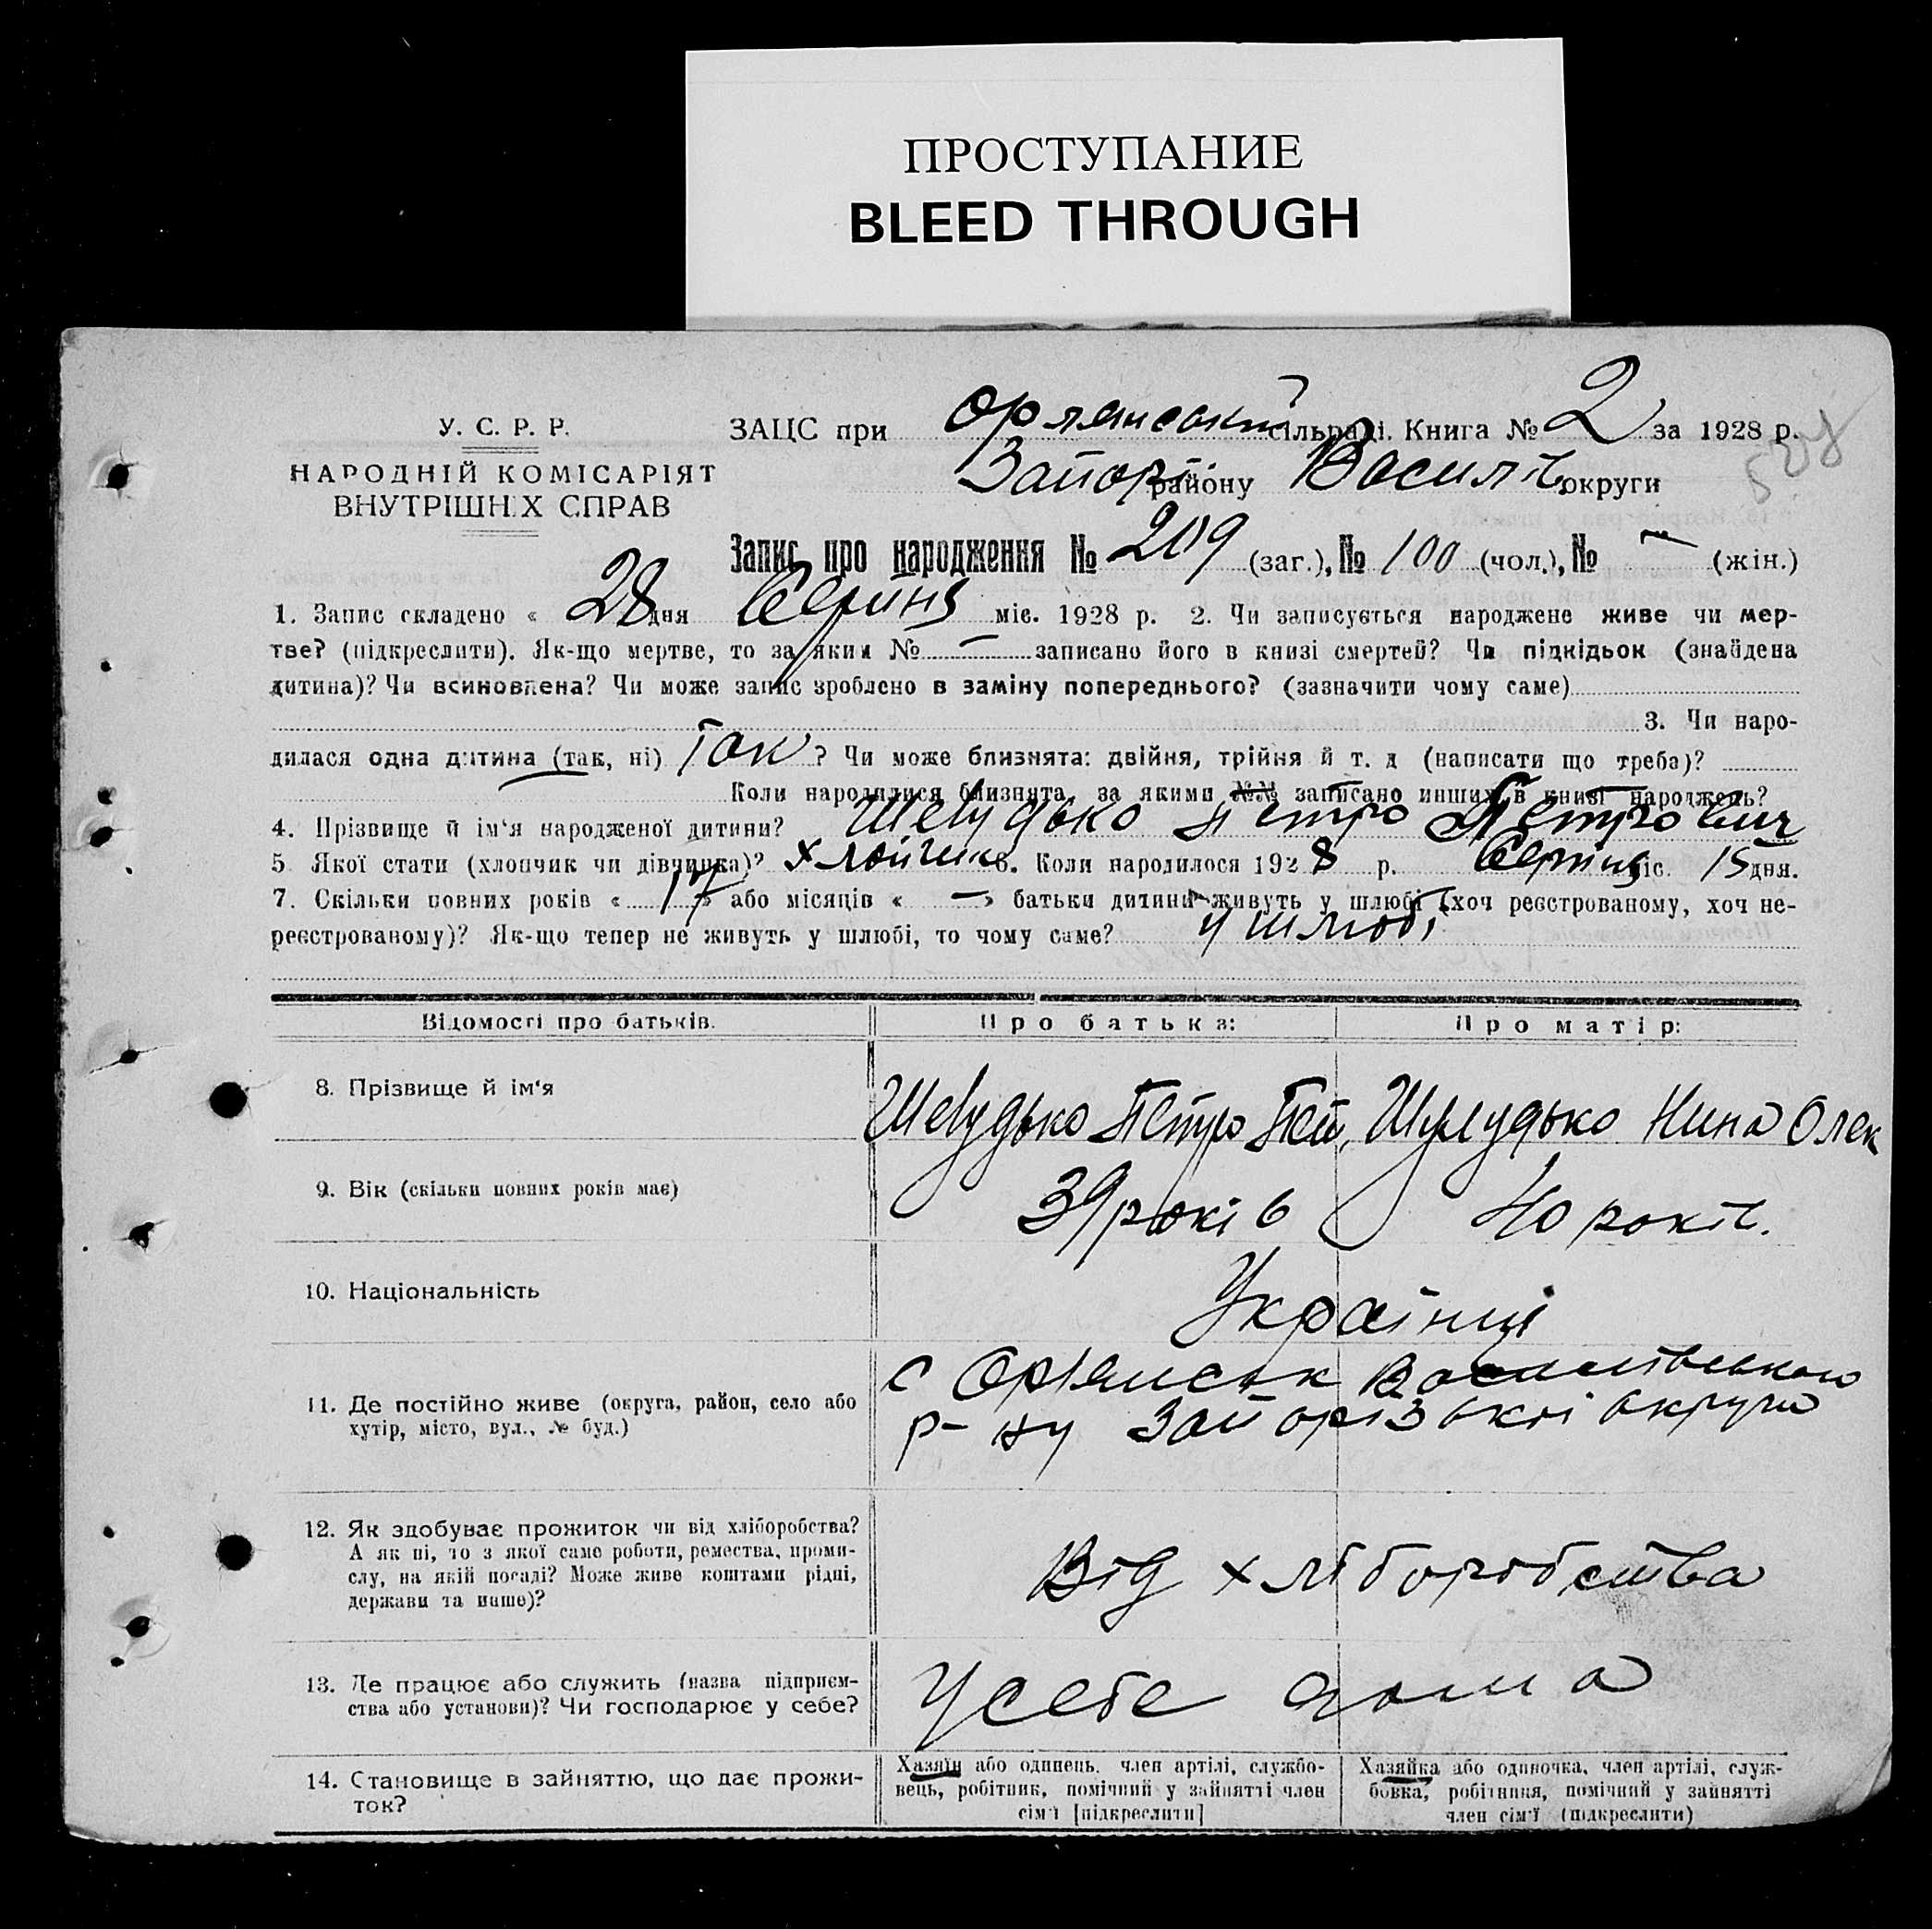 ПРОСТУПАНИЕ
BLEED THROUGH
У. С. Р. Р.
НАРОДНІЙ КОМІСАРІЯТ
ВНУТРІШНІХ СПРАВ
ЗАЦС при Орлянській сільраді. Книга № 2 за 1928 р.
Запор. району Василів округи
Запис про народження № 209 (заг.), № 100 (чол.), № — (жін.)
1. Запис складено « 28 дня Серпня міс. 1928 р. 2. Чи записується народжене живе чи мер-
тве? (підкреслити). Як-що мертве, то за яким № — записано його в книзі смертей? Чи підкідьок (знайдена
дитина)? Чи всиновлена? Чи може запис зроблено в заміну попереднього? (зазначити чому саме)
3. Чи наро-
дилася одна дитина (так, ні) Так ? Чи може близнята: двійня, трійня й т. д (написати що треба)?
Коли народилися близнята, за якими №№ записано инших в книзі народжень?
4. Прізвище й ім‘я народженої дитини? Шелудько Петро Петрович
5 Якої стати (хлопчик чи дівчинка)? хлопчик 6. Коли народилося 1928 р. Серпня міс. 15 дня.
7. Скільки повних років « 17 » або місяців « — » батьки дитини живуть у шлюбі (хоч реєстрованому, хоч не-
реєстрованому)? Як-що тепер не живуть у шлюбі, то чому саме? у шлюбі
Відомості про батьків. Про батька: Про матір:
8. Прізвище й ім‘я Шелудько Петро Пет. Шелудько Нина Олек
9. Вік (скільки повних років має) 39 років 40 років.
10. Національність Українці
11. Де постійно живе (округа, район, село або
хутір, місто, вул., № буд.)
с Орлянськ Василівського
р-ну Запорізької округи
12. Як здобуває прожиток чи від хліборобства?
А як ні, то з якої саме роботи, ремества, проми-
слу, на якій посаді? Може живе коштами рідні,
держави та инше)?
Від хліборобства
13. Де працює або служить (назва підприєм-
ства або установи)? Чи господарює у себе?
У себе дома
14. Становище в зайняттю, що дає прожи-
ток?
Хазяїн або одинець, член артілі, службо-
вець, робітник, помічний у зайнятті член
сім‘ї [підкреслити]
Хазяйка або одиночка, член артілі, служ-
бовка, робітниця, помічний у зайнятті
член сім‘ї (підкреслити)